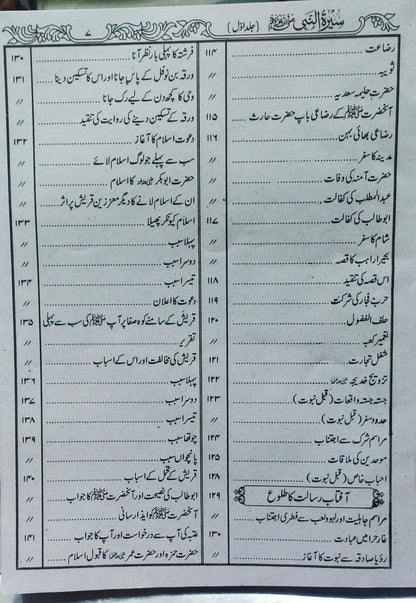 سیرۃ النبی ﷺ (جلد اوّل)
۷
رضاعت ۱۱۴
ثویبہ //
حضرت حلیمہ سعدیہ //
آنحضرت ﷺ کے رضاعی باپ حضرت حارث ۱۱۵
رضاعی بھائی بہن ۱۱۶
مدینہ کا سفر //
حضرت آمنہ کی وفات //
عبدالمطلب کی کفالت //
ابوطالب کی کفالت ۱۱۷
شام کا سفر //
بحیرا راہب کا قصہ //
اس قصہ کی تنقید ۱۱۸
حرب فجار کی شرکت ۱۱۹
حلف الفضول ۱۲۰
تعمیر کعبہ //
شغل تجارت ۱۲۱
تزویج خدیجہ ۱۲۲
جستہ جستہ واقعات (قبل نبوت) ۱۲۳
حدود سفر (قبل نبوت) //
مراسم شرک سے اجتناب ۱۲۴
موحدین کی ملاقات ۱۲۵
احباب خاص (قبل نبوت) ۱۲۸
آفتاب رسالت کا طلوع ۱۲۹
مراسم جاہلیت اور لہو و لعب سے فطری اجتناب //
غار حرا میں عبادت ۱۳۰
رؤیا صادقہ سے نبوت کا آغاز //
فرشتہ کا پہلی بار نظر آنا ۱۳۰
ورقہ بن نوفل کے پاس جانا اور اس کا تسکین دینا ۱۳۱
وحی کا کچھ دن کے لیے رک جانا //
ورقہ کے تسکین دینے کی روایت کی تنقید //
دعوت اسلام کا آغاز ۱۳۲
سب سے پہلے جو لوگ اسلام لائے //
حضرت ابوبکر کا اسلام //
ان کے اسلام لانے کا دیگر معززین قریش پر اثر //
اسلام کیونکر پھیلا ۱۳۳
پہلا سبب //
دوسرا سبب //
تیسرا سبب ۱۳۴
دعوت کا اعلان //
قریش کے سامنے کوہ صفا پر آپ ﷺ کی سب سے پہلی ۱۳۵
تقریر //
قریش کی مخالفت اور اس کے اسباب //
پہلا سبب ۱۳۶
دوسرا سبب ۱۳۷
تیسرا سبب ۱۳۸
چوتھا سبب ۱۳۹
پانچواں سبب //
قریش کے تحمل کے اسباب ۱۴۰
ابوطالب کی نصیحت اور آنحضرت ﷺ کا جواب //
آنحضرت ﷺ کو ایذا رسانی //
عتبہ کی آپ سے درخواست اور آپ کا جواب ۱۴۱
حضرت حمزہ اور حضرت عمر کا قبول اسلام //